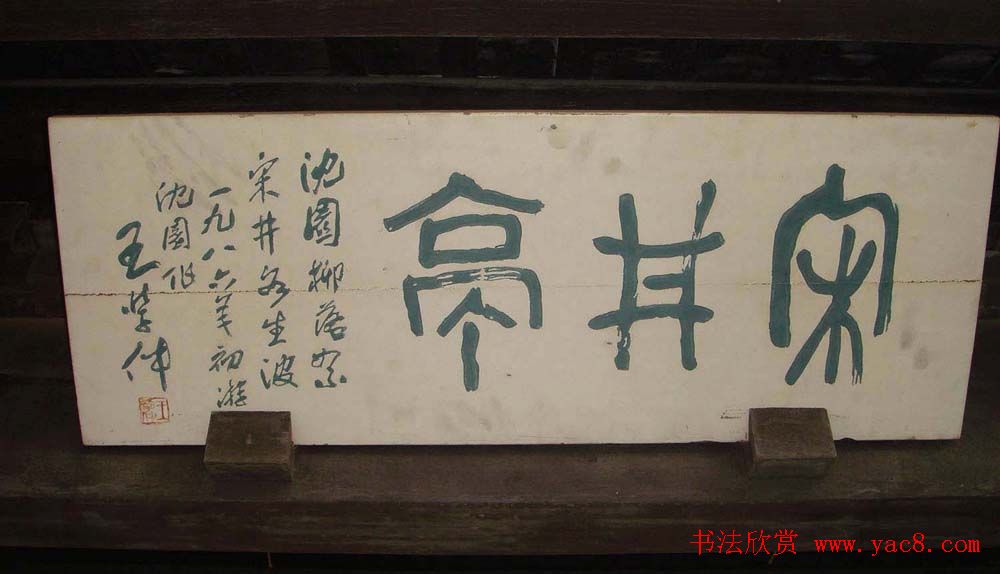 宋井亭
沈園柳落絮
宋井又生波
一九八六年初游
沈園作
王学仲
书法欣赏 www.yac8.com